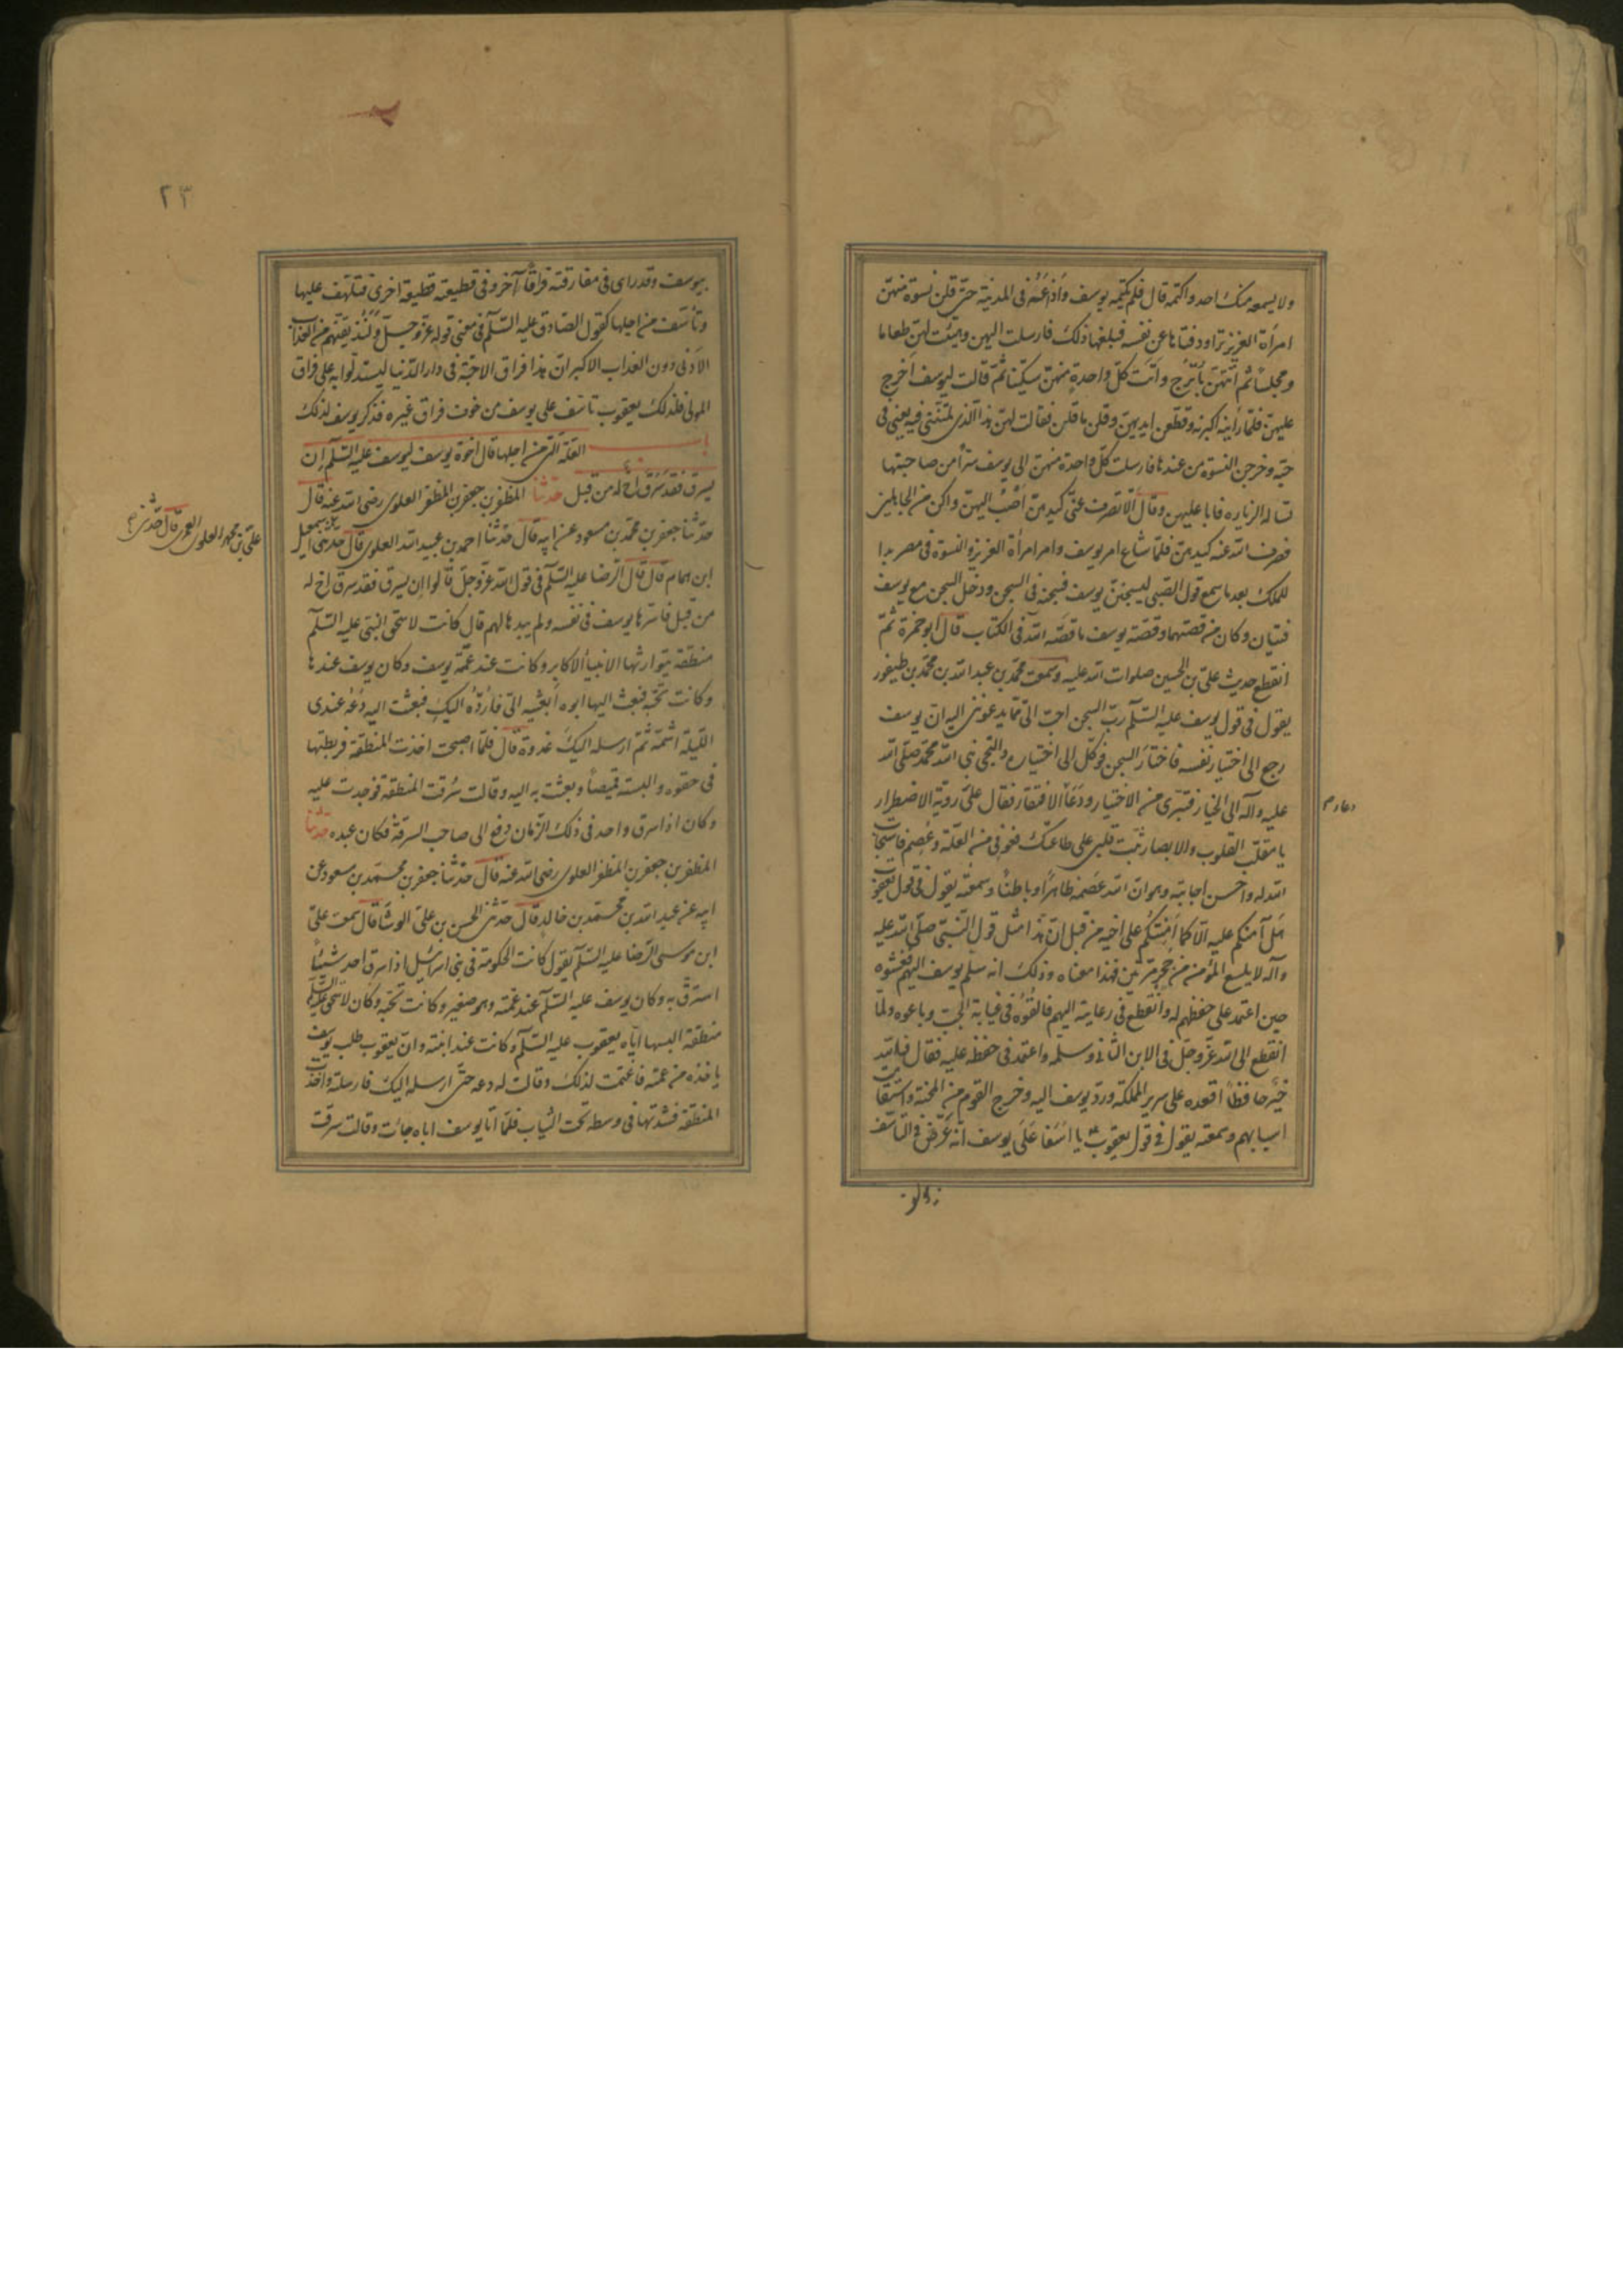 ولا يسمعه منك احد واكتمه قال فلم يكتمه يوسف واذاعته فى المدينة حتى قلن نسوة منهنّ
امرأة العزيز تراود فتاها عن نفسه فبلغها ذلك فارسلت اليهن وهيّئت لهنّ طعاما
ومجلساً ثم اتتهنّ بأترج وآتت كلّ واحدةٍ منهنّ سكيناً ثمّ قالت ليوسف اخرج
عليهنّ فلمّا رأينه اكبرنه وقطّعن ايديهنّ وقلن ما قلن فقالت لهنّ هذا الّذى لمتنّنى فيه يعنى فى
حبّه وخرجن النسوة من عندها فارسلت كلّ واحدة منهنّ الى يوسف سرّاً من صاحبتها
تساله الزياره فابا عليهن وقال الّا تصرف عنّى كيدهنّ اصب اليهنّ واكن من الجاهلين
فصرف الله عنه كيدهنّ فلمّا شاع امر يوسف وامر امرأة العزيز والنسوة فى مصر بدا
للملك بعد ما سمع قول الصّبى ليسجننّ يوسف فسجنه فى السجن ودخل السجن مع يوسف
فتيان وكان من قصتهما وقصّة يوسف ما قصّه الله فى الكتاب قال ابو حمزة ثمّ
انقطع حديث علىّ بن الحسين صلوات الله عليه وسمعت محمّد بن عبد الله بن محمّد بن طيفور
يقول فى قول يوسف عليه السّلم ربّ السجن احبّ الىّ ممّا يدعوننى اليه انّ يوسف
رجع الى اختيار نفسه فاختار السجن فوكّل الى اختياره والتجى نبى الله محمّد صلّى الله
عليه وآله الى الخيار فتبرى من الاختيار ودعا الافتقار فقال على روية الاضطرار
دعاء م
يا مقلّب القلوب والابصار ثبّت قلبى على طاعتك فعوفى من العلّة وعُصم فاستجاب
الله له واحسن اجابته وهو انّ الله عَصَمَه ظاهراً وباطناً وسمعته يقول فى قول يعقوب
هل آمنكم عليه الّا كما امنتكم على اخيه من قبل انّ هذا مثل قول النّبىّ صلّى الله عليه
وآله لا يلسع المؤمن من جحرٍ مرّتين فهذا معناه وذلك انه سلّم يوسف اليهم فغشّوه
حين اعتمد على حفظهم له وانقطع فى رعايته اليهم فالقوه فى غيابة الجبّ وباعوه ولمّا
انقطع الى الله عزّ وجلّ فى الابن الثانى وسلّمه واعتمد فى حفظه عليه فقال فالله
خيرٌ حافظاً اقعده على سرير المملكة وردّ يوسف اليه وخرج القوم من المحنة واستقامت
اسبابهم وسمعته يقول فى قول يعقوب يا اسفا على يوسف انّه عرّض فى التاسّف
بيوسف وقد راى فى مفارقته فراقاً آخر وفى قطيعته قطيعة اخرى فتلهّف عليها
وتأسّف من اجلها كقول الصّادق عليه السّلم فى معنى قوله عزّ وجلّ ولنذيقنّهم من العذاب
الادنى دون العذاب الاكبر انّ هذا فراق الاحبّة فى دار الدّنيا ليستدلّوا به على فراق
المولى فلذلك يعقوب تاسّف على يوسف من خوف فراق غيره فذكر يوسف لذلك
باب العلّة الّتى من اجلها قال اخوة يوسف ليوسف عليه السّلم إن
يسرق فقد سَرَقَ اخ له من قبل حدّثنا المظفّر بن جعفر بن المظفّر العلوى رضى الله عنه قال
حدّثنا جعفر بن محمّد بن مسعود عن ابيه قال حدّثنا احمد بن عبيد الله العلوى قال حدثنى اسمعيل
علىّ بن محمد العلوى العمرى قال حدّثنى
ابن همام قال قال الرّضا عليه السّلم فى قول الله عزّ وجلّ قالوا ان يسرق فقد سرق اخ له
من قبل فاسرّها يوسف فى نفسه ولم يبدها لهم قال كانت لاسحق النّبى عليه السّلم
منطقة يتوارثها الانبيأ الاكابر وكانت عند عمّة يوسف وكان يوسف عندها
وكانت تحبّه فبعث اليها ابوه ابعثيه الىّ فاردّه اليكِ فبعثت اليه دَعْه عندى
اللّيلة اشمّه ثمّ ارسله اليكَ غدوة قال فلمّا اصبحت اخذت المنطقة فربطتها
فى حقوه والبسته قميصاً وبعثت به اليه وقالت سُرقت المنطقة فوجدت عليه
وكان اذا سرق واحد فى ذلك الزّمان دفع الى صاحب السرقة فكان عبده حدّثنا
المظفر بن جعفر بن المظفر العلوى رضى الله عنه قال حدّثنا جعفر بن محمّد بن مسعود عن
ابيه عن عبد الله بن محمّد بن خالد قال حدّثنى الحسن بن علىّ الوشّا قال سمعت علىّ
ابن موسى الرّضا عليه السّلم يقول كانت الحكومة فى بنى اسرائيل اذا سرق احد شيئاً
استرقّ به وكان يوسف عليه السّلم عند عمّته وهو صغير وكانت تحبّه وكان لاسحق عليه السّلم
منطقة البسها ايّاه يعقوب عليه السّلم وكانت عند ابنته وانّ يعقوب طلب يوسف
ياخذه من عمته فاغتمت لذلك وقالت له دعه حتى ارسله اليك فارسلته واخذت
المنطقة فشدّتها فى وسطه تحت الثياب فلمّا اتا يوسف اباه جائت وقالت سرقت
٢٣